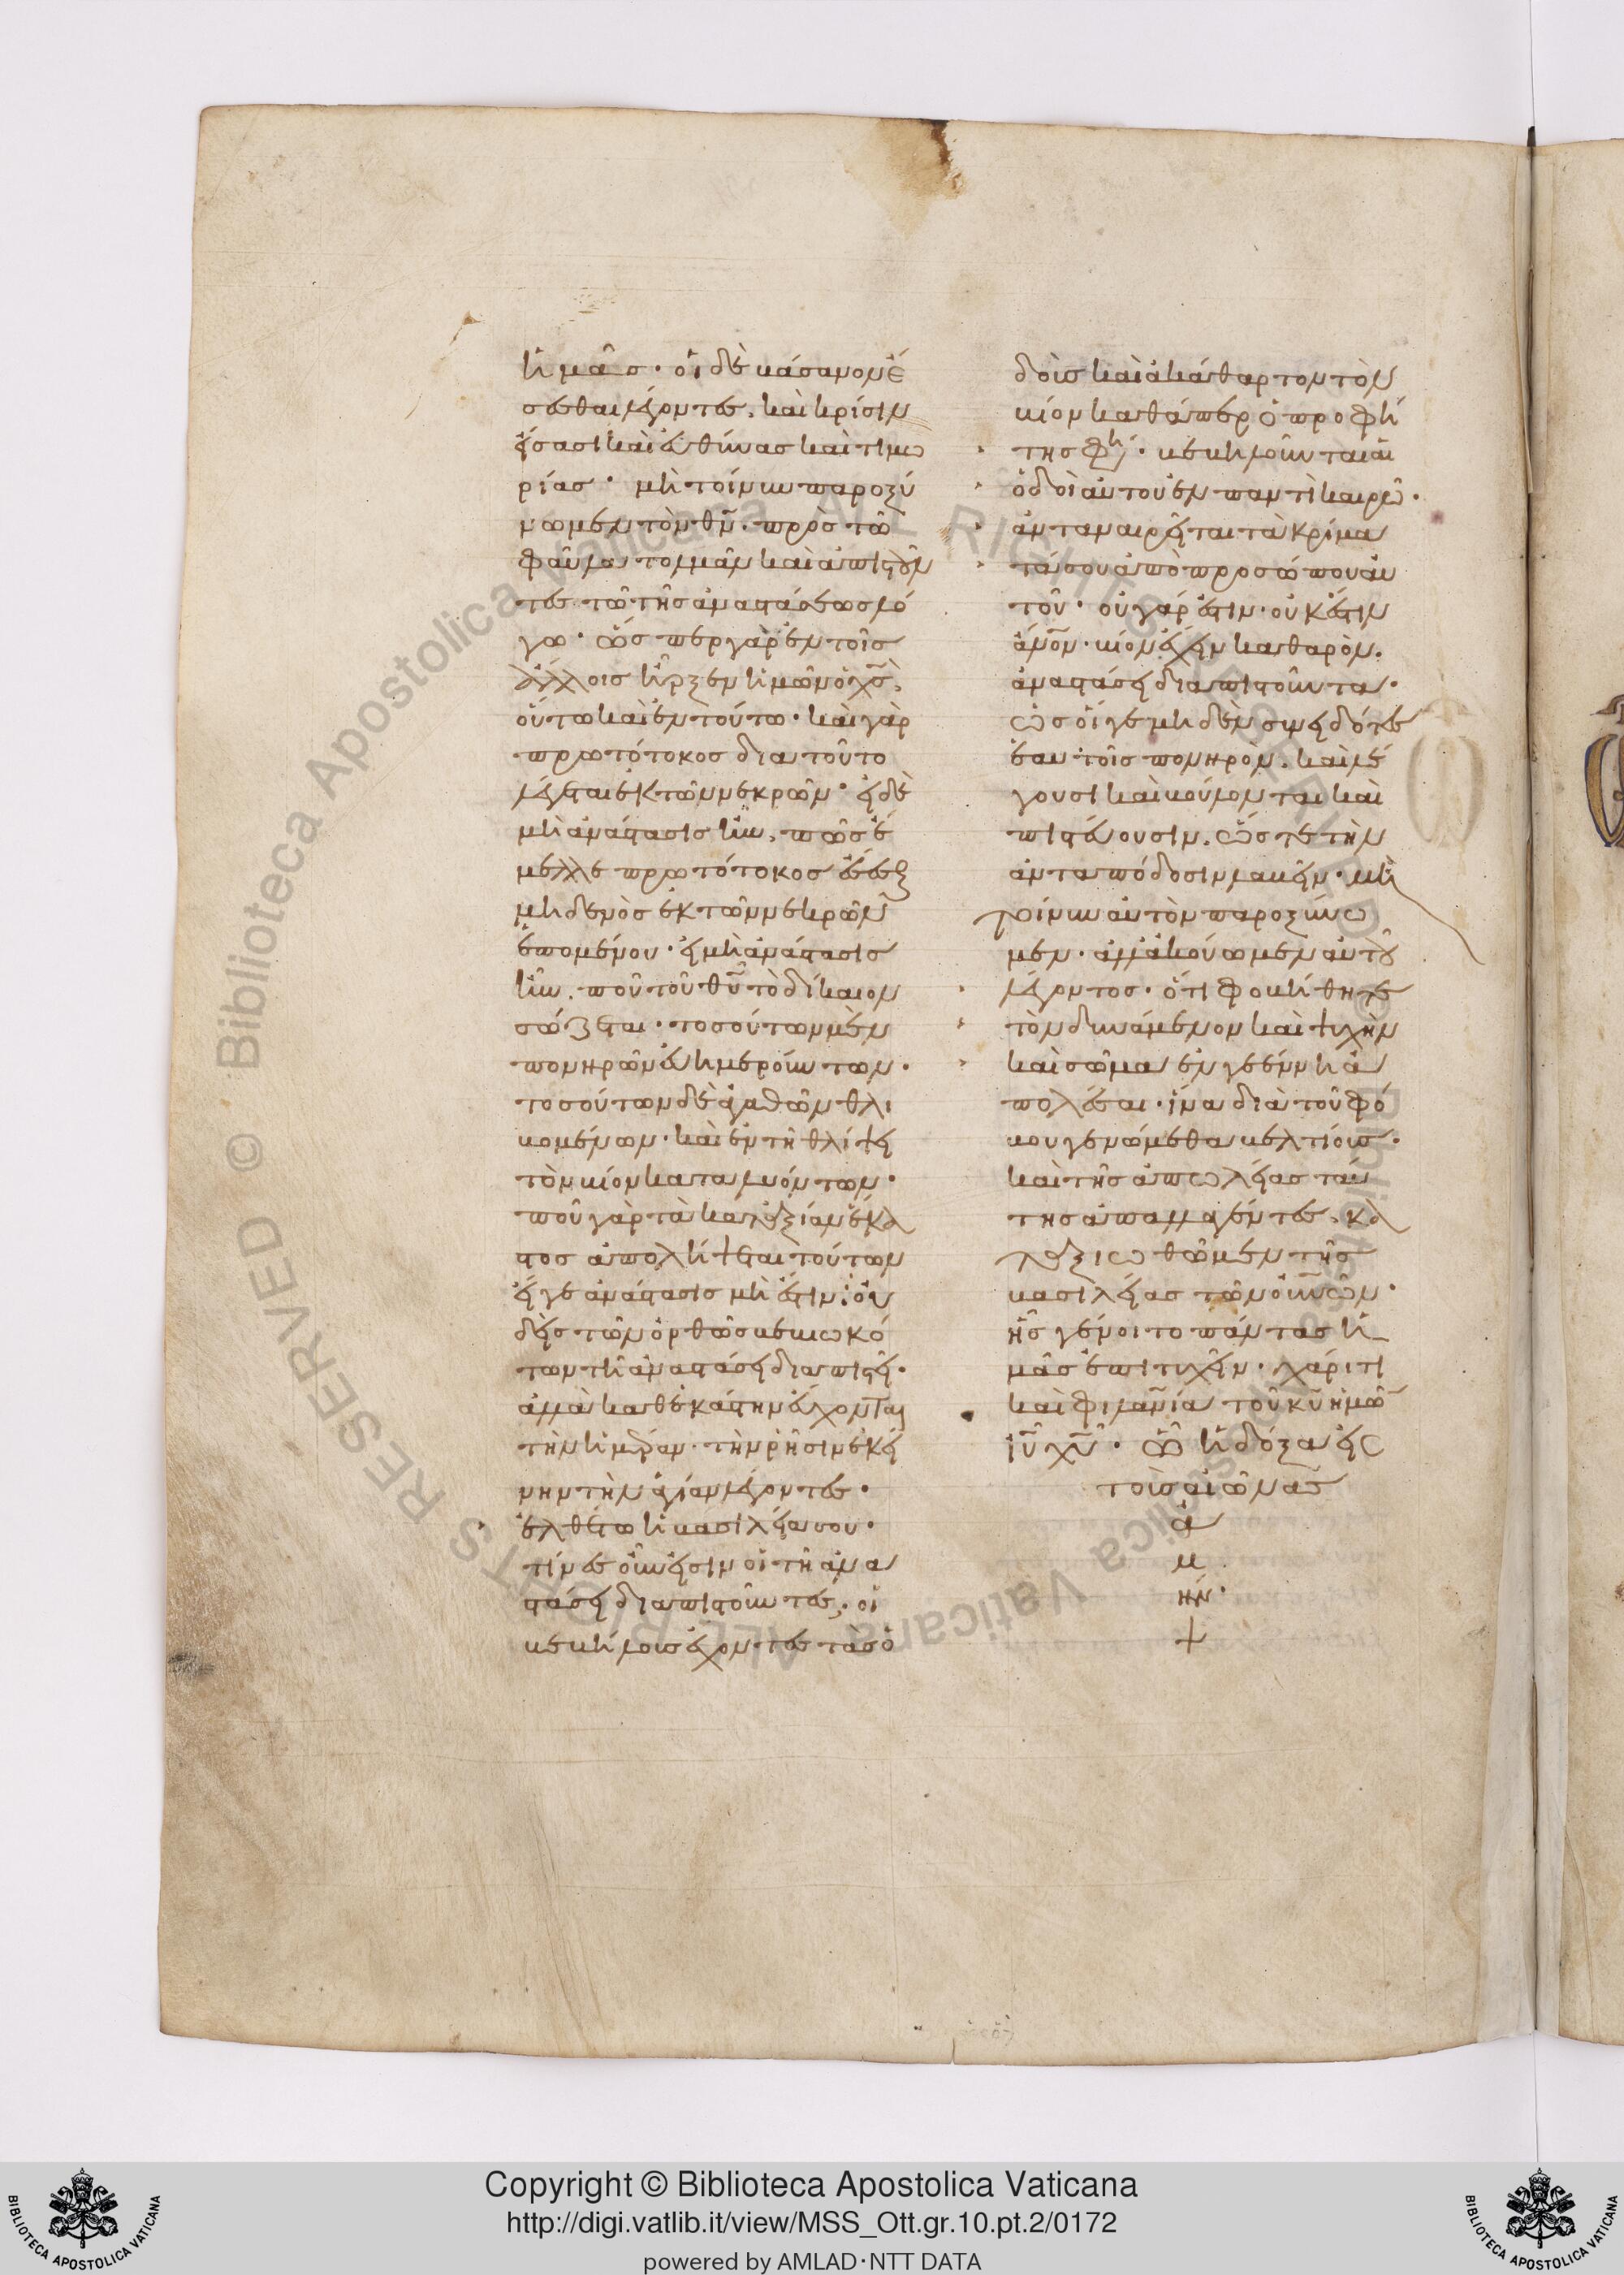 ἡμᾶς· οἱ δὲ βάσανον ἔ
σεσθαι λέγοντες, καὶ κρίσιν
εἴσασι καὶ εὐθύνας καὶ τιμω
ρίας· μὴ τοίνυν παροξύ
νωμεν τὸν θν̄· πρὸς τῶ
φαῦλα τολμᾶν καὶ ἀπιστοῦν
τες τῶ τῆς ἀναστάσεως λό
γω· ὥσπερ γὰρ ἐν τοῖς
ἄλλοις ἦρξεν ἡμῶν ὁ χς̄,
οὕτω καὶ ἐν τούτω· καὶ γὰρ
πρωτότοκος διατοῦτο
λέγεται ἐκ τῶν νεκρῶν· εἰ δὲ
μὴ ἀνάστασις ἦν, πῶς ἔ
μελλε πρωτότοκος ἔσεσθαι
μηδενὸς ἐκ τῶν νεκρῶν
ἑπομένου· εἰ μὴ ἀνάστασις
ἦν, ποῦ τοῦ θῡ τὸ δίκαιον
σώζεται· τοσούτων μὲν
πονηρῶν εὐημερούντων·
τοσούτων δὲ ἀγαθῶν θλι
βομένων· καὶ ἐν τῆ θλίψει
τὸν βίον καταλυόντων·
ποῦ γὰρ τὰ κατ' ἀξίαν ἕκα
στος ἀπολήψεται τούτων
εἴγε ἀνάστασις μὴ ἔστιν· οὐ
δεὶς τῶν ὀρθῶς βεβιωκό
των τῆ ἀναστάσει διαπιστεῖ·
ἀλλὰ καθεκάστην εὔχονται
τὴν ἡμέραν· τὴν ῥῆσιν ἐκεί
νην τὴν ἁγίαν λέγοντες·
ἐλθέτω ἡ βασιλεία σου·
τίνες οὖν εἰσὶν οἱ τῆ ἀνα
στάσει διαπιστοῦντες· οἱ
βεβήλους ἔχοντες τὰς ὁ
δοὺς καὶ ἀκάθαρτον τὸν
βίον καθάπερ ὁ προφή
της φη· βεβηλοῦνται αἱ
ὁδοὶ αὐτοῦ ἐν παντὶ καιρῶ·
ἀνταναιρεῖται τὰ κρίμα
τά σου ἀπὸ προσώπου αὐ
τοῦ· οὐ γάρ ἐστιν· οὐκ ἔστιν
ἄνον· βίον ἔχειν καθαρὸν,
ἀναστάσει διαπιστοῦντα·
ὡς οἵγε μηδὲν συνειδότες
ἑαυτοῖς πονηρὸν, καὶ λέ
γουσι καὶ βούλονται καὶ
πιστεύουσιν, ὥστε τὴν
ἀνταπόδοσιν λαβεῖν· μὴ
τοίνυν αὐτὸν παροξύνω
μεν· ἀλλ' ἀκούωμεν αὐτοῦ
λέγοντος· ὅτι φοβήθητε
τὸν δυνάμενον καὶ ψυχὴν
καὶ σῶμα ἐν γεέννη ἀ
πολέσαι· ἵνα διὰ τοῦ φό
βου γενώμεθα βελτίους·
καὶ τῆς ἀπωλείας ταύ
της ἀπαλλαγέντες, κα
ταξιωθῶμεν τῆς
βασιλείας τῶν οὐνῶν·
ἧς γένοιτο πάντας ἡ
μᾶς ἐπιτυχεῖν· χάριτι
καὶ φιλανία τοῦ κῡ ἡμῶν
ιῡ χῡ· ὧ ἡ δόξα εἰς
τοὺς αἰῶνας
ἀ
μ
ήν·
+
Copyright © Biblioteca Apostolica Vaticana
http://digi.vatlib.it/view/MSS_Ott.gr.10.pt.2/0172
powered by AMLAD·NTT DATA